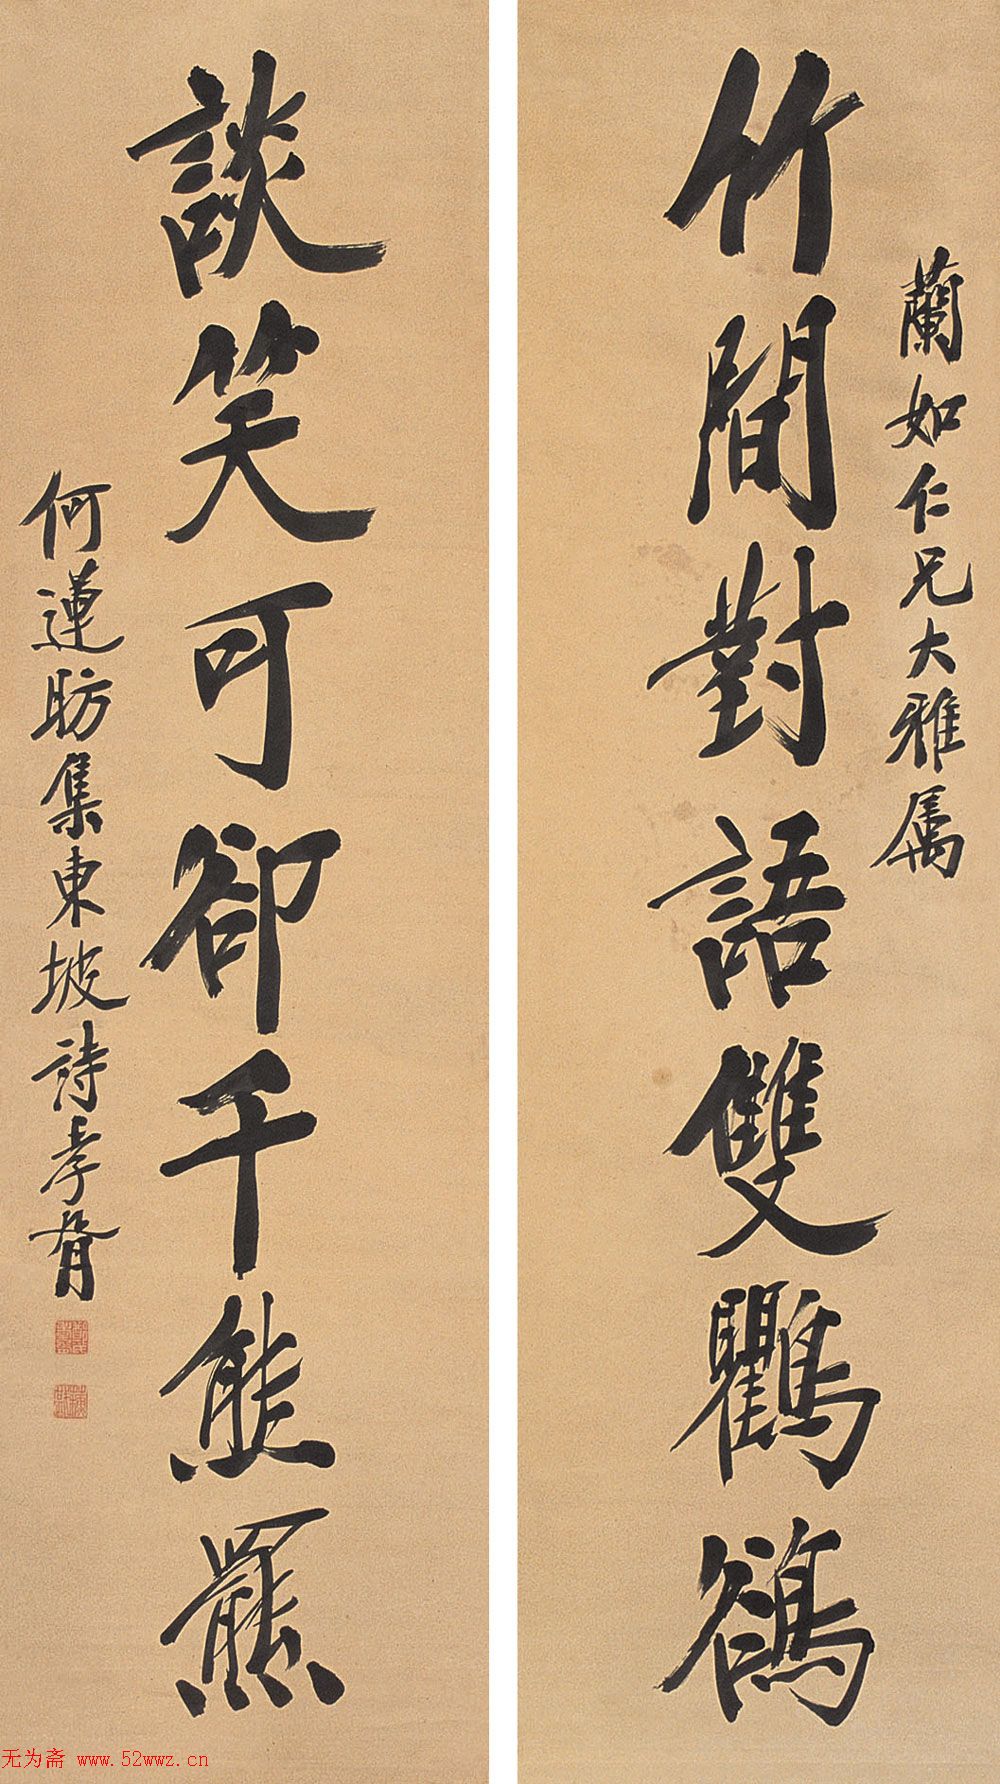 蘭如仁兄大雅属
竹間對語雙鸜鵒
談笑可卻千熊羆
何蓮昉集東坡詩孝胥
无为斋 www.52wwz.cn